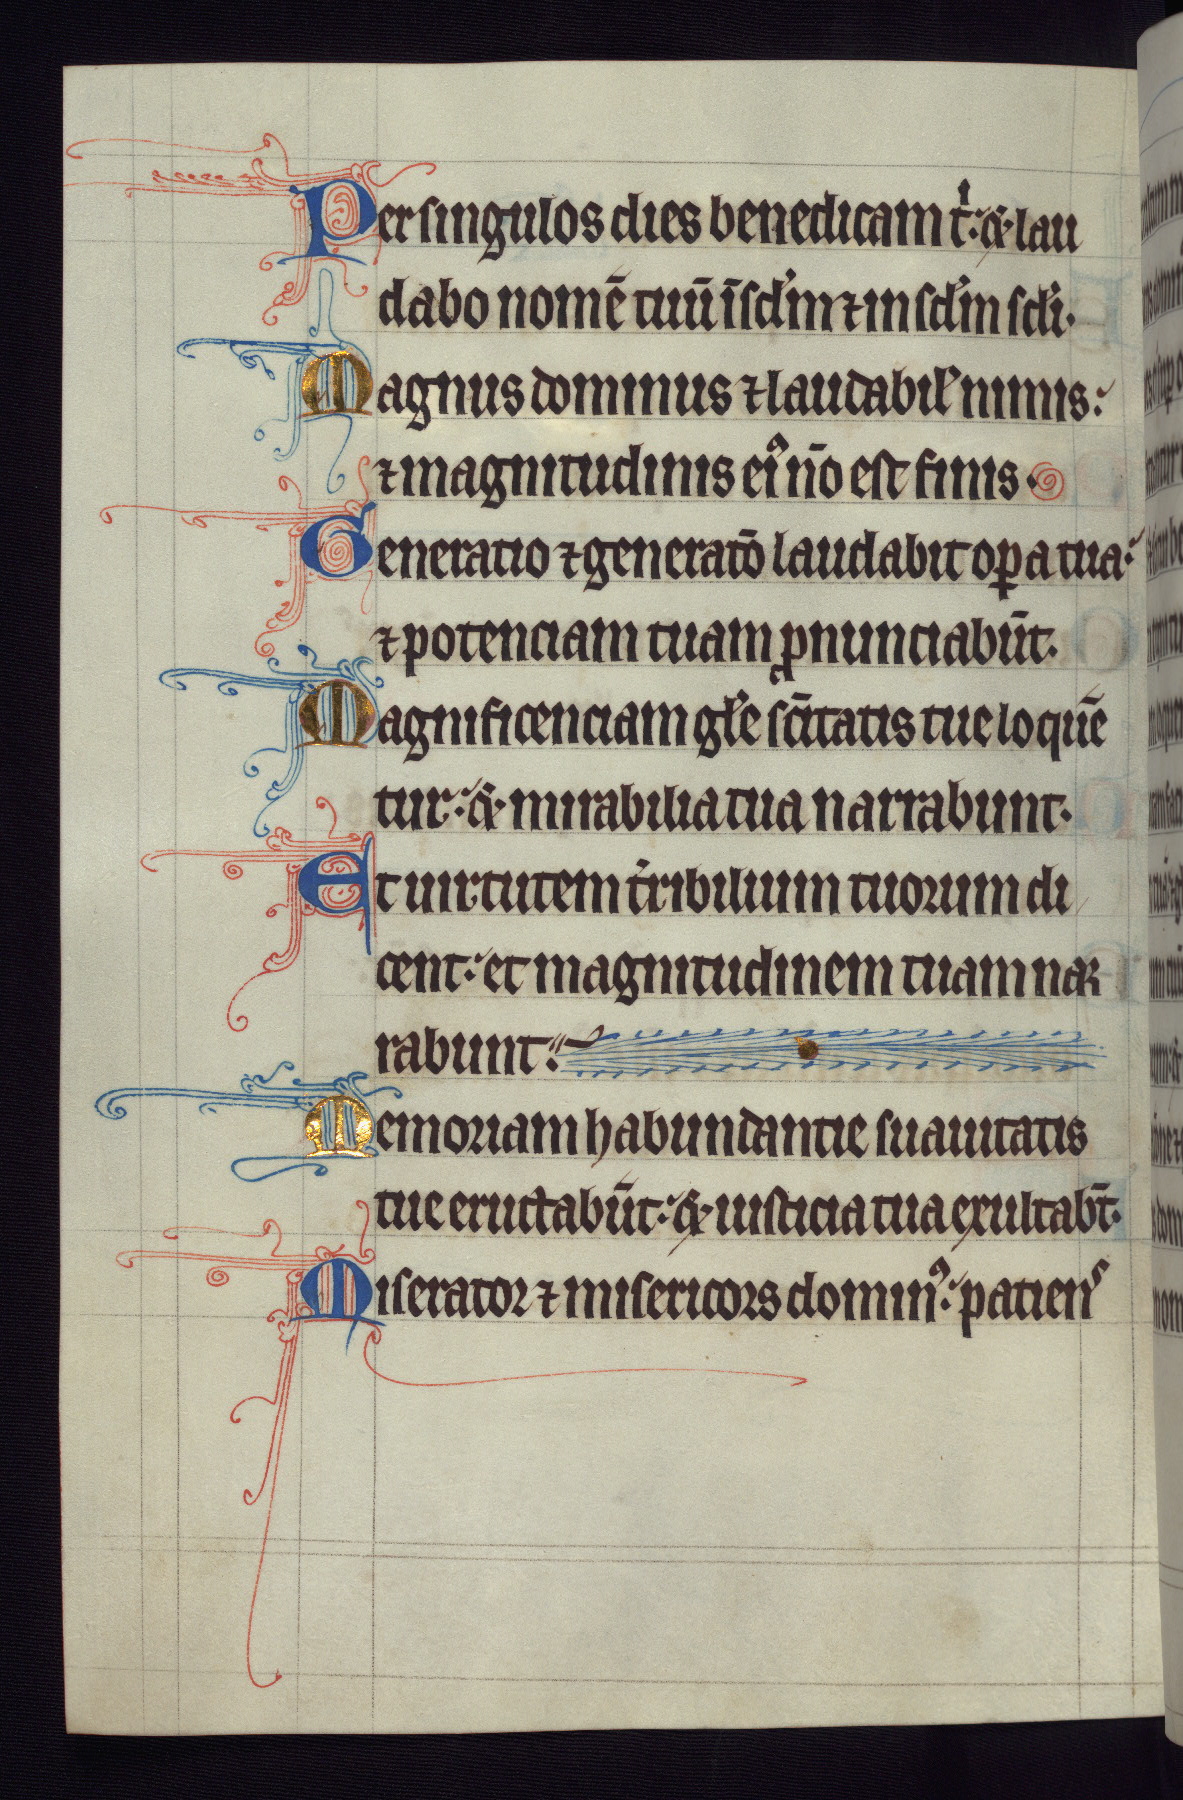 Per singulos dies benedicam tⁱ: & lau
dabo nomē tuū ī scl̕m ⁊ in scl̕m scl̕i.
Magnus dominus ⁊ laudabil̕ nimis:
⁊ magnitudinis eiꝰ nō est finis.
Generatio ⁊ generatō laudabit oꝑa tua:
⁊ potenciam tuam ꝓnunciabūt.
Magnificenciam gl̕e sc̄itatis tue loquē
tur: & mirabilia tua narrabunt.
Et uirtutem t̄ribilium tuorum di
cent: et magnitudinem tuam nar
rabunt:
Memoriam habundantie suauitatis
tue eructabūt: & iusticia tua exultab̄t.
Miserator ⁊ misericors dominꝰ: patienˢ